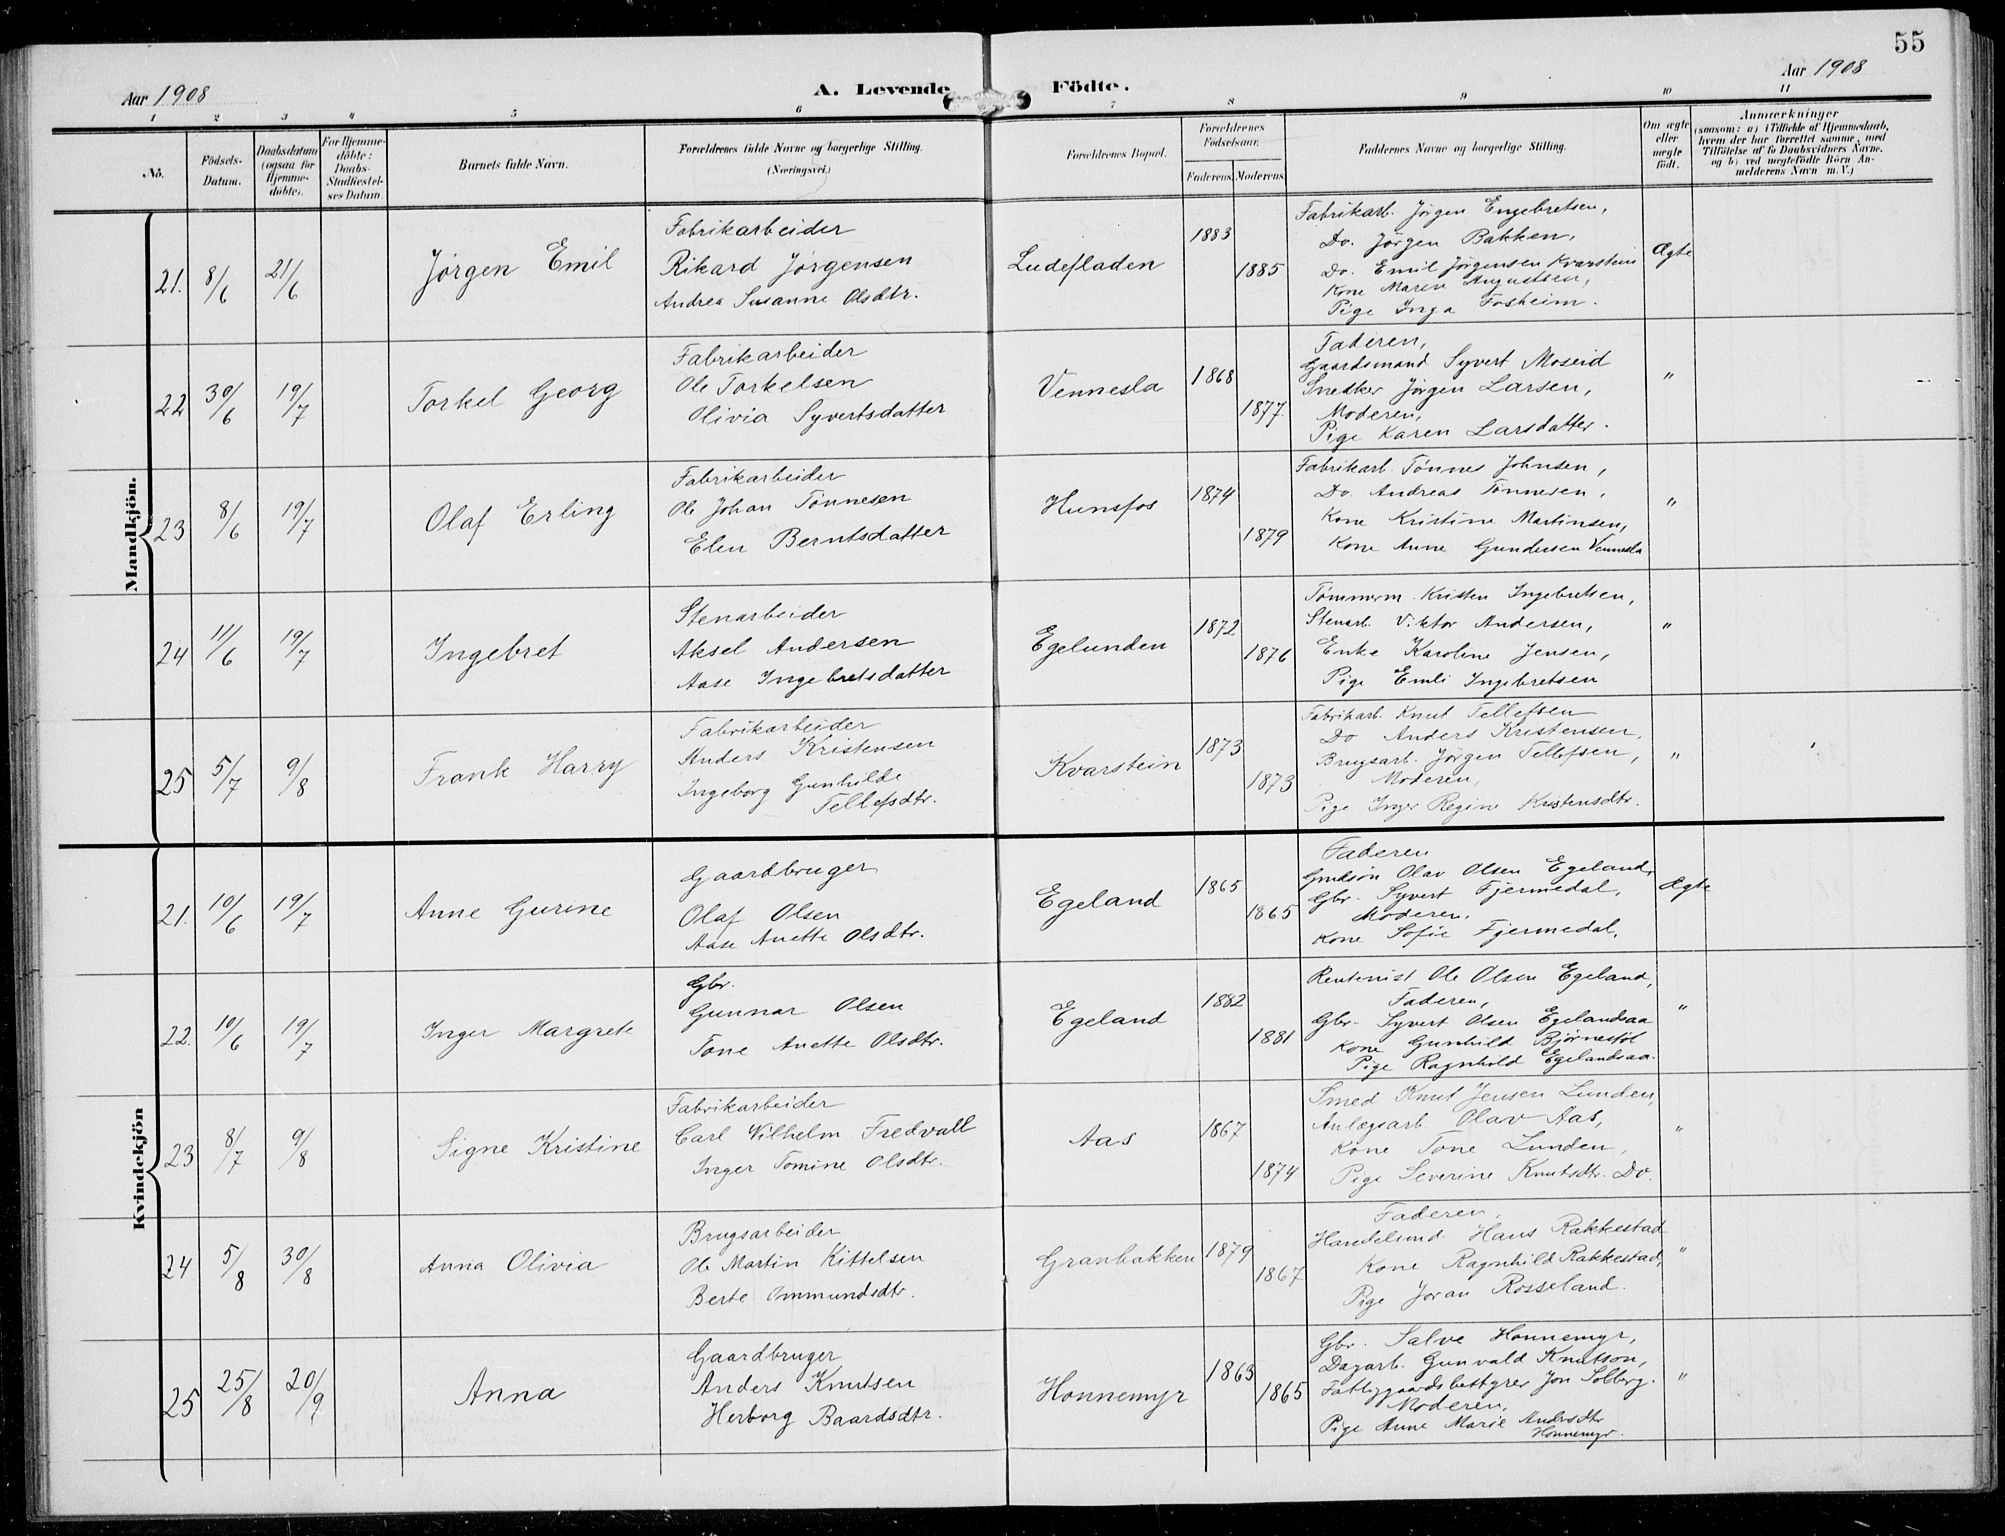 55
Aar 1908
A. Levende Födte.
Aar 1908
1 2 3 4 5 6 7 8 9 10 11
Nö.
Födsels-Datum.
Daabsdatum (ogsaa for Hjemme-döbte).
For Hjemme-döbte: Daabs-Stadfæstel-ses Datum.
Barnets fulde Navn.
Forældrenes fulde Navne og borgerlige Stilling. (Næringsvei.)
Forældrenes Bopæl.
Forældrenes Födselsaar.
Faderens. Moderens.
Faddernes Navne og borgerlige Stilling.
Om ægte eller uægte födt.
Anmærkninger
(saasom: a) i Tilfælde af Hjemmedaab, hvem der har forrettet samme, med Tilföielse af to Daabsvidners Navne, og b) ved uegtefödte Börn An-melderens Navn m. V.)
Mandkjön.
21. 8/6 21/6
Jørgen Emil
Fabrikarbeider
Rikard Jørgensen
Andrea Susanne Olsdtr.
Ludefladen
1883
1885
Fabrikarb. Jørgen Engebretsen,
Do. Jørgen Bakken,
Do. Emil Jørgensen Kvarstein
Kone Maren Augustsen,
Pige Inga Fosheim.
Ægte
22 30/6 19/7
Torkel Georg
Fabrikarbeider
Ole Torkelsen
Olivia Syvertsdatter
Vennesla
1868
1877.
Faderen,
Gaardsmand Syvert Moseid
Snedker Jørgen Larsen,
Moderen,
Pige Karen Larsdatter.
"
23 8/6 19/7
Olaf Erling
Fabrikarbeider
Ole Johan Tønnesen
Elen Berntsdatter
Hunsfos
1874
1879
Fabrikarb. Tønnes Johnsen,
Do. Andreas Tønnesen,
Kone Kristine Martinsen,
Kone Anne Gundersen Vennesla
"
24 11/6 19/7
Ingebret
Stenarbeider
Aksel Andersen
Aase Ingebretsdatter
Egelunden
1872
1876
Tømmerm. Kristen Ingebretsen,
Stenarb. Viktor Andersen,
Enke Karoline Jensen,
Pige Emli Ingebretsen
"
25 5/7 9/8
Frank Harry
Fabrikarbeider
Anders Kristensen
Ingeborg Gunhilde
Tellefsdtr.
Kvarstein
1873
1873
Fabrikarb. Knut Tellefsen
Do Anders Kristensen,
Brugsarb. Jørgen Tellefsen,
Moderen,
Pige Inger Regine Kristensdtr.
"
Kvindekjön
21. 10/6 19/7
Anne Gurine
Gaardbruger
Olaf Olsen
Aase Anette Olsdtr.
Egeland
1865
1865
Faderen
Olav Olsen Egeland,
Gbr. Syvert Fjermedal,
Moderen,
Kone Sofie Fjermedal,
Ægte
22. 10/6 19/7
Inger Margrete
Gbr.
Gunnar Olsen
Tone Anette Olsdtr.
Egeland
1882
1881
Rentenist Ole Olsen Egeland,
Faderen,
Gbr. Syvert Olsen Egelandsaa
Kone Gunhild Bjørnestøl
Pige Ragnhild Egelandsaa.
"
23 8/7 9/8
Signe Kristine
Fabrikarbeider
Carl Vilhelm Fredvall
Inger Tomine Olsdtr.
Aas
1867
1874
Smed Knut Jensen Lunden,
Anlægsarb. Olav Aas,
Kone Tone Lunden,
Pige Severine Knutsdtr. Do.
"
24 5/8 30/8
Anna Olivia
Brugsarbeider
Ole Martin Kittelsen
Berte Ommundsdtr.
Granbakken
1879
1867
Faderen,
Handelsmd. Hans Rakkestad
Kone Ragnhild Rakkestad,
Pige Joran Rosseland.
"
25 25/8 20/9
Anna
Gaardbruger
Anders Knutsen
Herborg Baardsdtr.
Honnemyr
1863
1865
Gbr. Salve Honnemyr,
Dagarb. Gunvald Knutson,
Fattiggaardsbestyrer Jon Solberg.
Moderen,
Pige Anne Marie Andersdtr
Honnemyr.
"